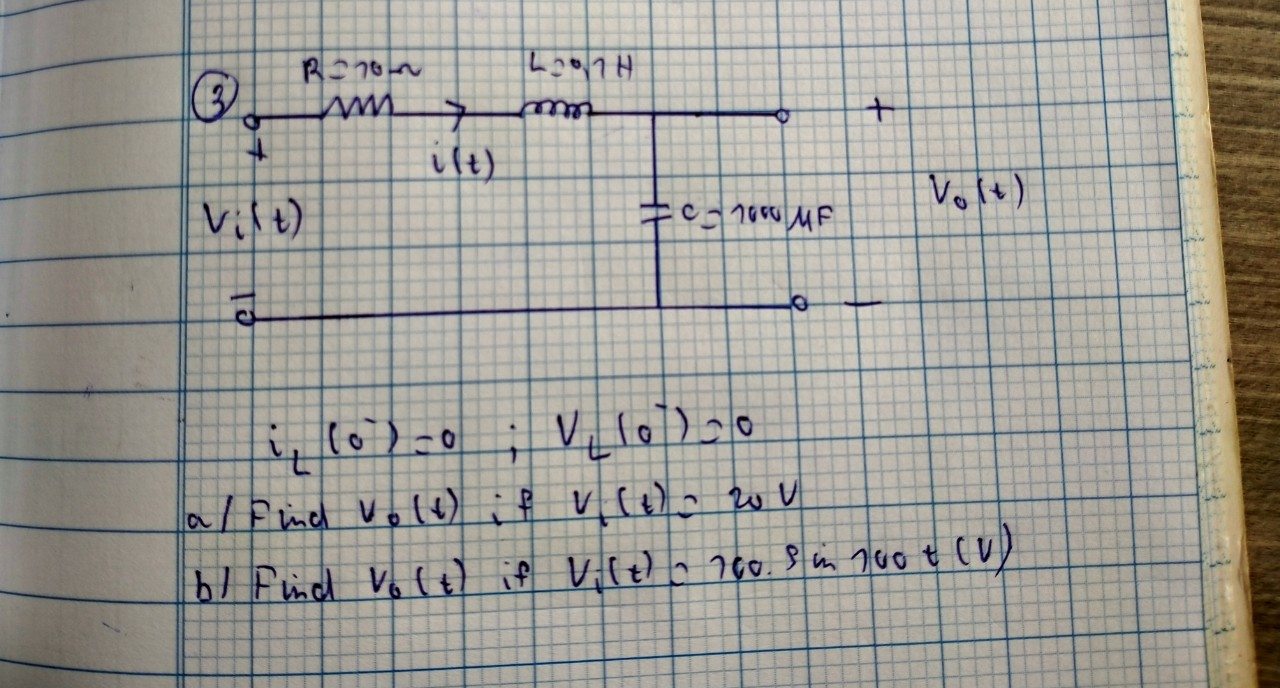 ③ R=10Ω L=0,1H
+ i(t) +
Vi(t) C=1000µF Vo(t)
− −
iL(0⁻)=0 ; VL(0⁻)=0
a/ Find Vo(t) if Vi(t)= 20 V
b/ Find Vo(t) if Vi(t)= 100. Sin 100 t (V)